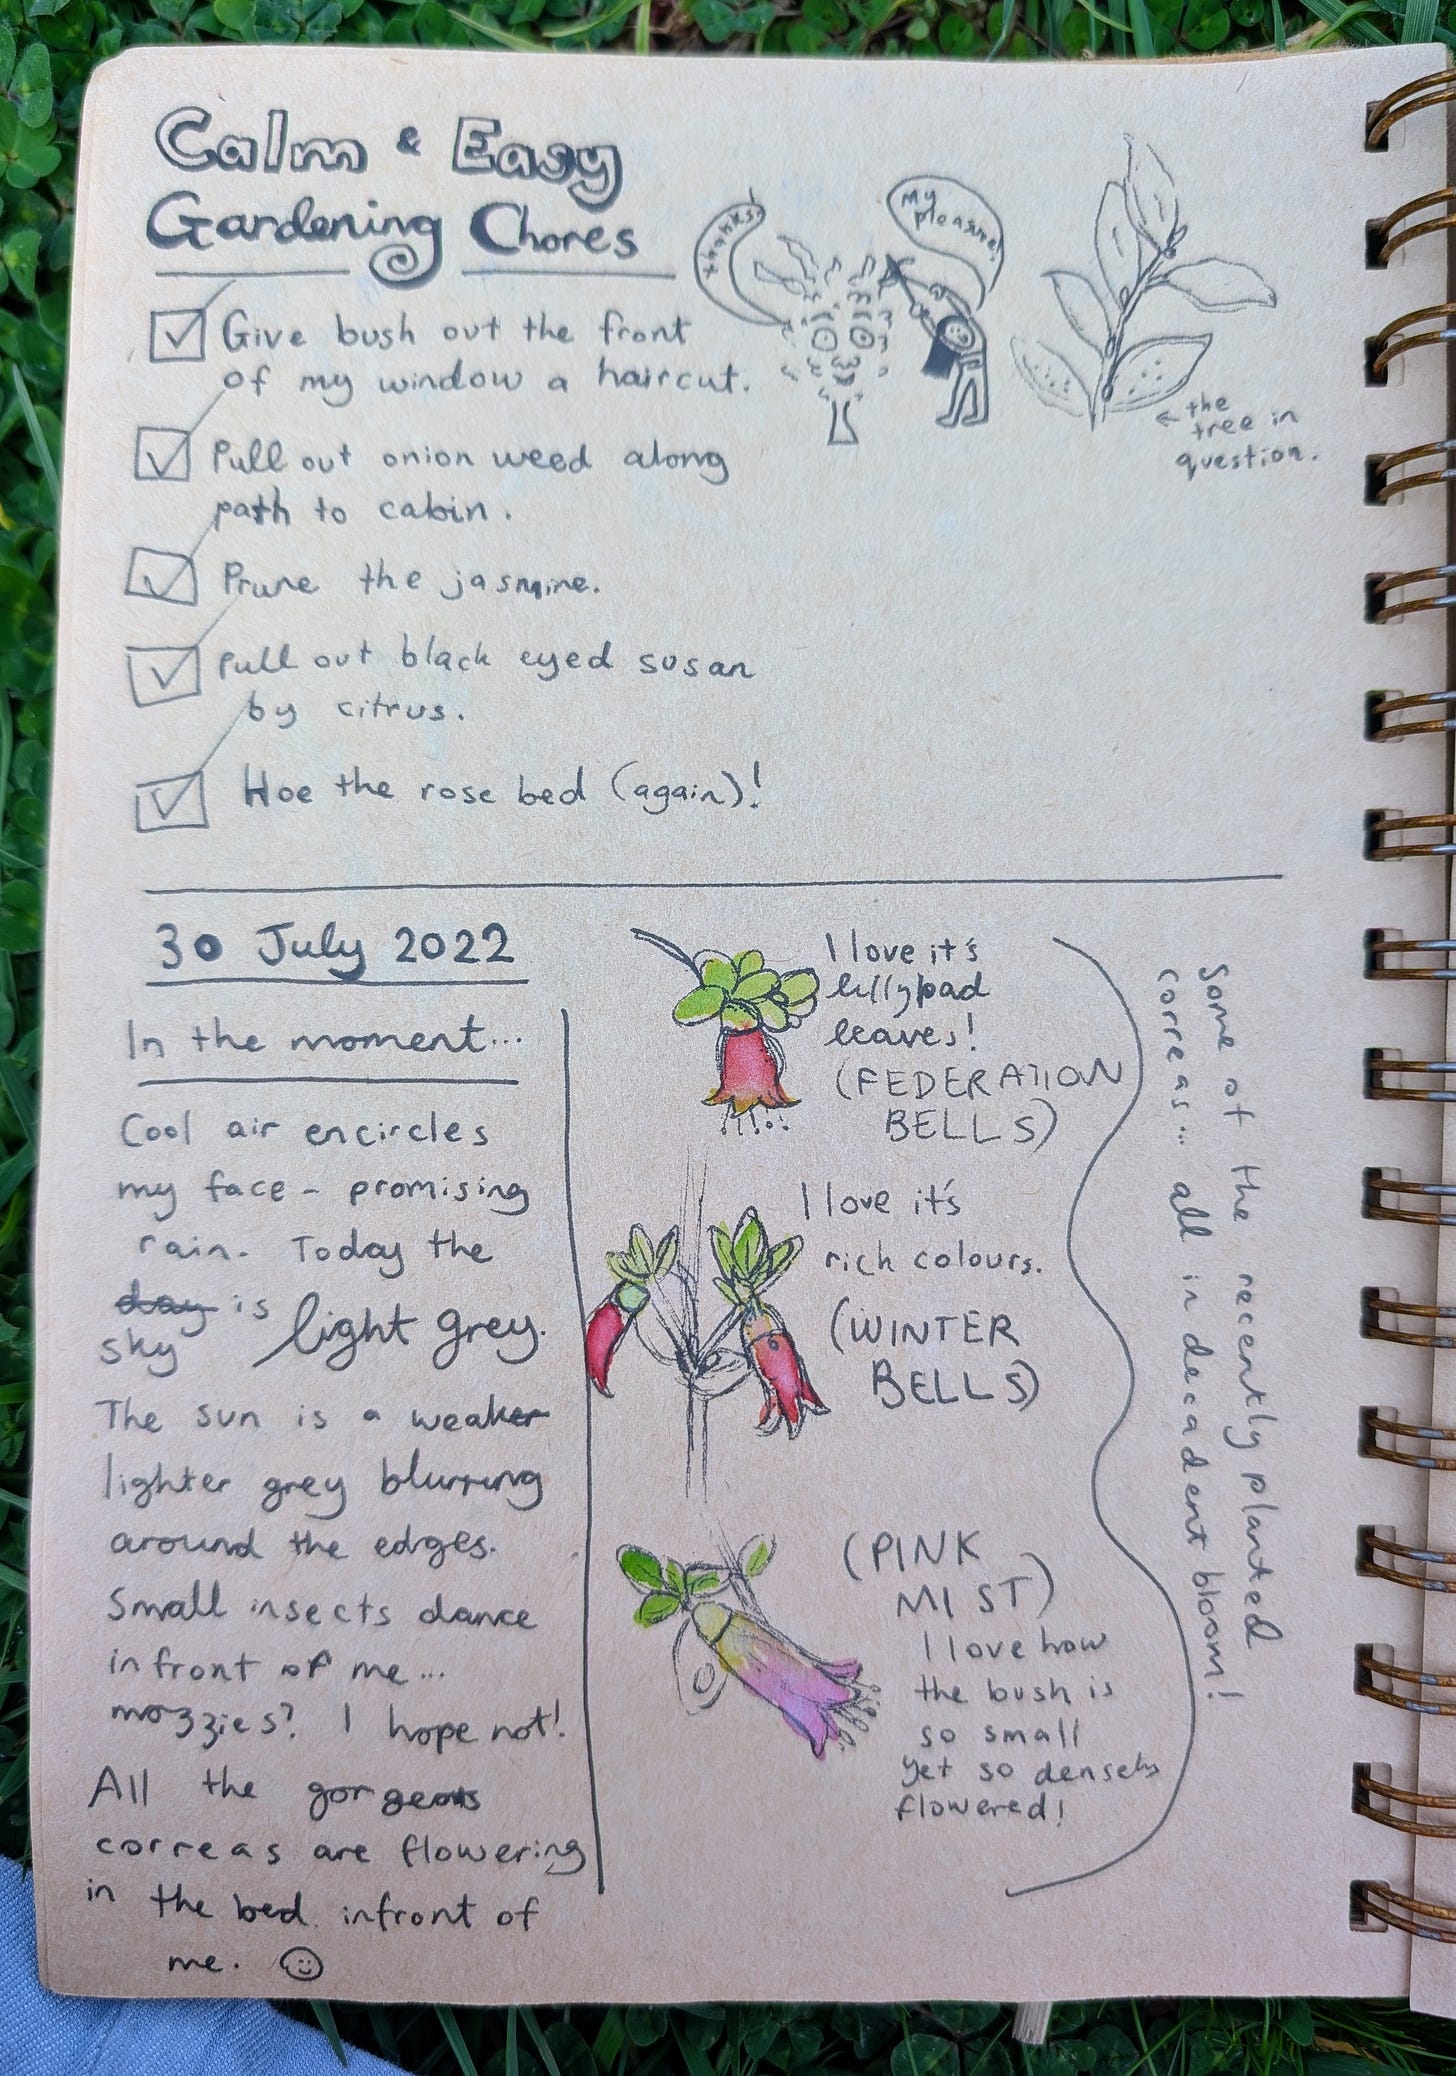 Calm & Easy
Gardening Chores
Give bush out the front
of my window a haircut.
Pull out onion weed along
path to cabin.
Prune the jasmine.
Pull out black eyed susan
by citrus.
Hoe the rose bed (again)!
thanks!
My
pleasure!
← the
tree in
question.
30 July 2022
In the moment...
Cool air encircles
my face - promising
rain. Today the
day is
sky light grey.
The sun is a weaker
lighter grey blurring
around the edges.
Small insects dance
infront of me...
mozzies? I hope not!
All the gorgeous
correas are flowering
in the bed infront of
me. ☺
I love it's
lillypad
leaves!
(FEDERATION
BELLS)
I love it's
rich colours.
(WINTER
BELLS)
(PINK
MIST)
I love how
the bush is
so small
yet so densely
flowered!
Some of the recently planted
correas... all in decadent bloom!